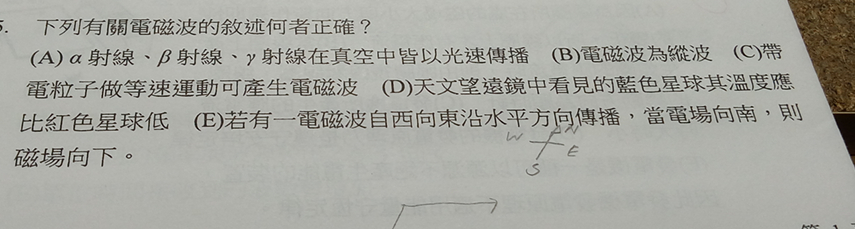 5. 下列有關電磁波的敘述何者正確？
(A) α 射線、β 射線、γ 射線在真空中皆以光速傳播 (B)電磁波為縱波 (C)帶
電粒子做等速運動可產生電磁波 (D)天文望遠鏡中看見的藍色星球其溫度應
比紅色星球低 (E)若有一電磁波自西向東沿水平方向傳播，當電場向南，則
磁場向下。
W N
E
S